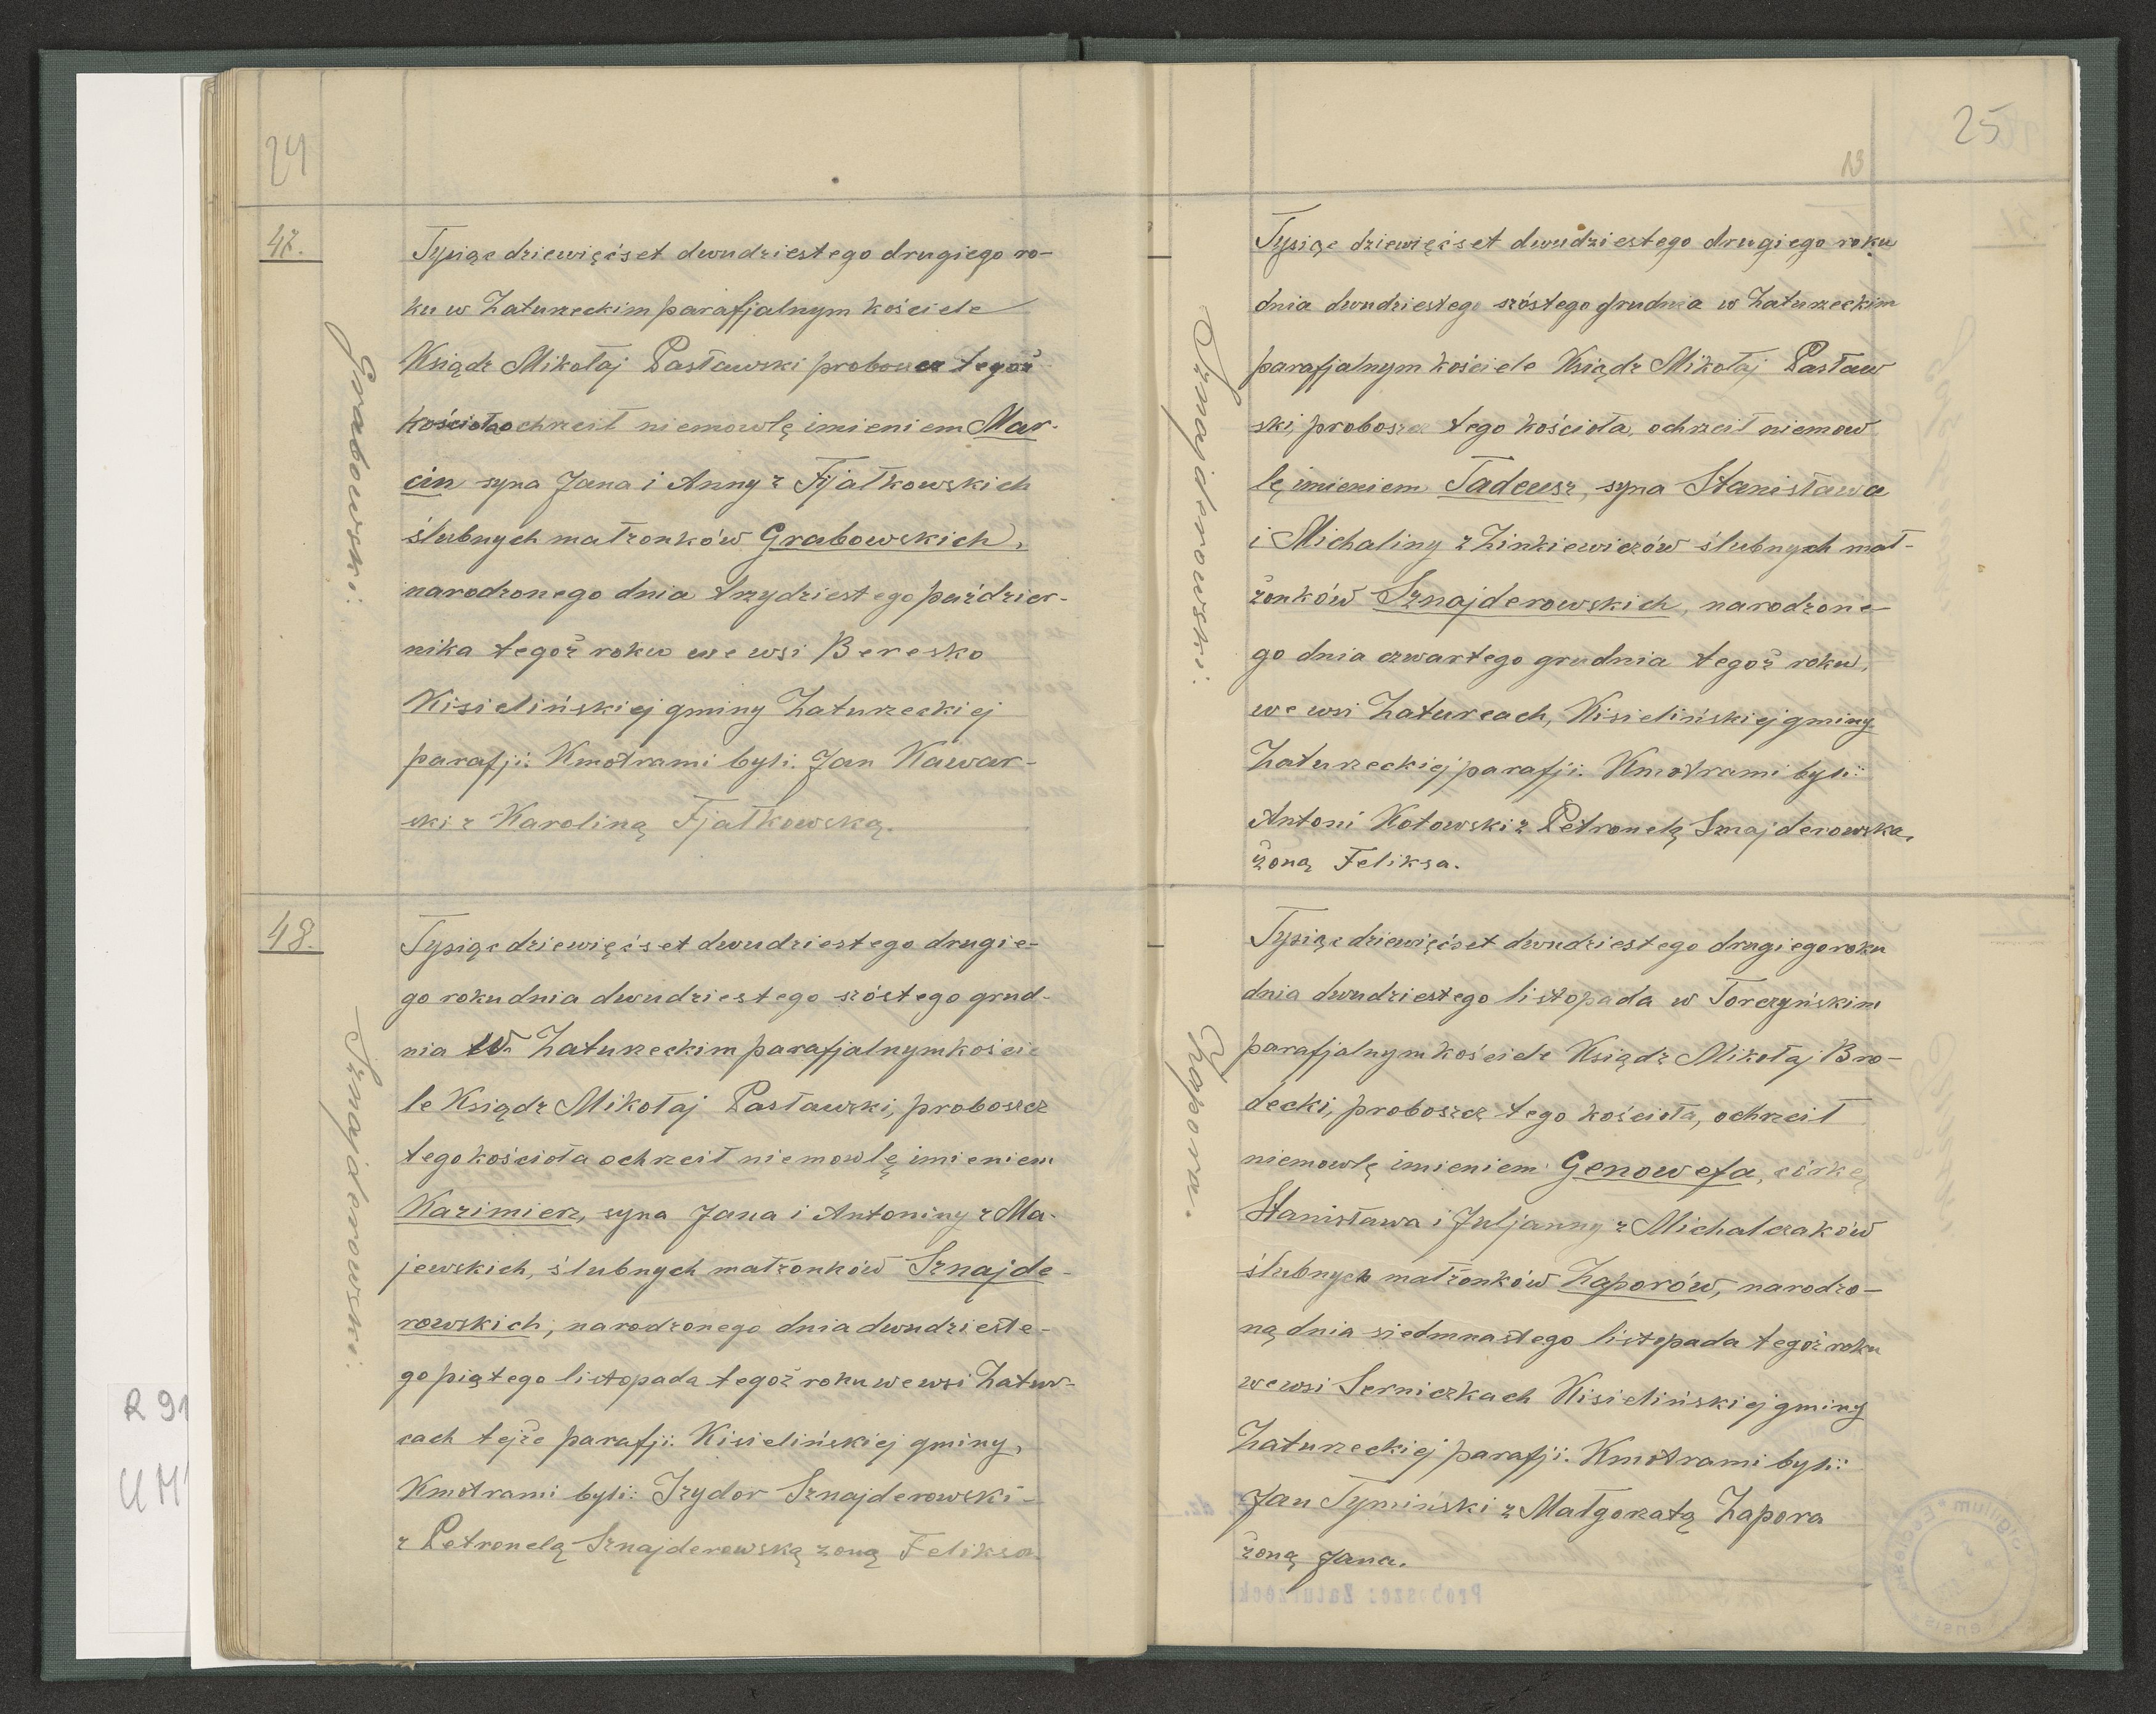 24
47.
Grabowski:
Tysiąc dziewięćset dwudziestego drugiego ro-
ku w Zaturzeckim parafjalnym kościele
Ksiądz Mikołaj Pasławski tegoż
kościoła ochrzcił niemowlę imieniem Mar-
cin syna Jana i Anny z Fjałkowskich
ślubnych małżonków Grabowskich,
narodzonego dnia trzydziestego paździer-
nika tegoż roku we wsi Beresko
Kisielińskiej gminy Zaturzeckiej
parafji. Kmotrami byli: Jan Kawar-
ski z Karoliną Fjałkowską.
48.
Sznajderowski:
Tysiąc dziewięćset dwudziestego drugie-
go roku dnia dwudziestego szóstego grud-
nia w Zaturzeckim parafjalnym koście
le Ksiądz Mikołaj Pasławski, proboszcz
tego kościoła ochrzcił niemowlę imieniem
Kazimierz, syna Jana i Antoniny z Ma-
jewskich, ślubnych małżonków Sznajde-
rowskich, narodzonego dnia dwudzieste-
go piątego listopada tegoż roku we wsi Zatur-
cach tejże parafji. Kisielińskiej gminy,
Kmotrami byli: Izydor Sznajderowski-
z Petronelą Sznajderowską żoną Feliksa.
25
13
Sznajderowski:
Tysiąc dziewięćset dwudziestego drugiego roku
dnia dwudziestego szóstego grudnia w Zaturzeckim
parafjalnym kościele Ksiądz Mikołaj Pasław
ski, proboszcz tego kościoła, ochrzcił niemow
lę imieniem Tadeusz, syna Stanisława
i Michaliny z Zinkiewiczów ślubnych mał-
żonków Sznajderowskich, narodzone-
go dnia czwartego grudnia tegoż roku,
we wsi Zaturcach, Kisielińskiej gminy
Zaturzeckiej parafji. Kmotrami byli:
Antoni Kotowski z Petronelą Sznajderowską,
żoną Feliksa.
Zapora.
Tysiąc dziewięćset dwudziestego drugiego roku
dnia dwudziestego listopada w Torczyńskim
parafjalnym kościele Ksiądz Mikołaj Bro-
decki, proboszcz tego kościoła, ochrzcił
niemowlę imieniem Genowefa, córkę
Stanisława i Juljanny z Michalczaków
ślubnych małżonków Zaporów, narodzo-
ną dnia siedmnastego listopada tegoż roku
we wsi Serniczkach Kisielińskiej gminy
Zaturzeckiej parafji. Kmotrami byli:
Jan Tymiński z Małgorzatą Zapora
żoną Jana.
Proboszcz Zaturzecki
R 91